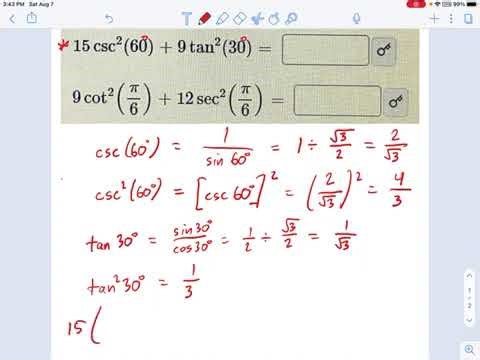 3:43 PM Sat Aug 7
99%
* 15 csc²(60°) + 9 tan²(30°) =
9 cot²(π/6) + 12 sec²(π/6) =
csc(60°) = 1/sin 60° = 1 ÷ √3/2 = 2/√3
csc²(60°) = [csc 60°]² = (2/√3)² = 4/3
tan 30° = sin 30°/cos 30° = 1/2 ÷ √3/2 = 1/√3
tan² 30° = 1/3
15 (
1
/
2